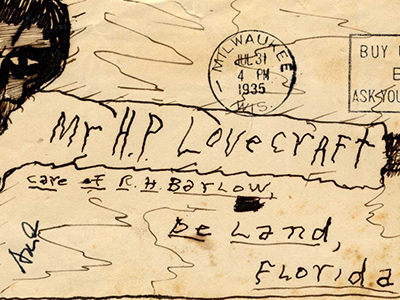 MILWAUKEE
JUL 31
4 PM
1935
WIS.
BUY U
E
ASK YOU
Mr H.P. LOVECRAFT
care of R.H. BARLOW,
De Land,
Florida